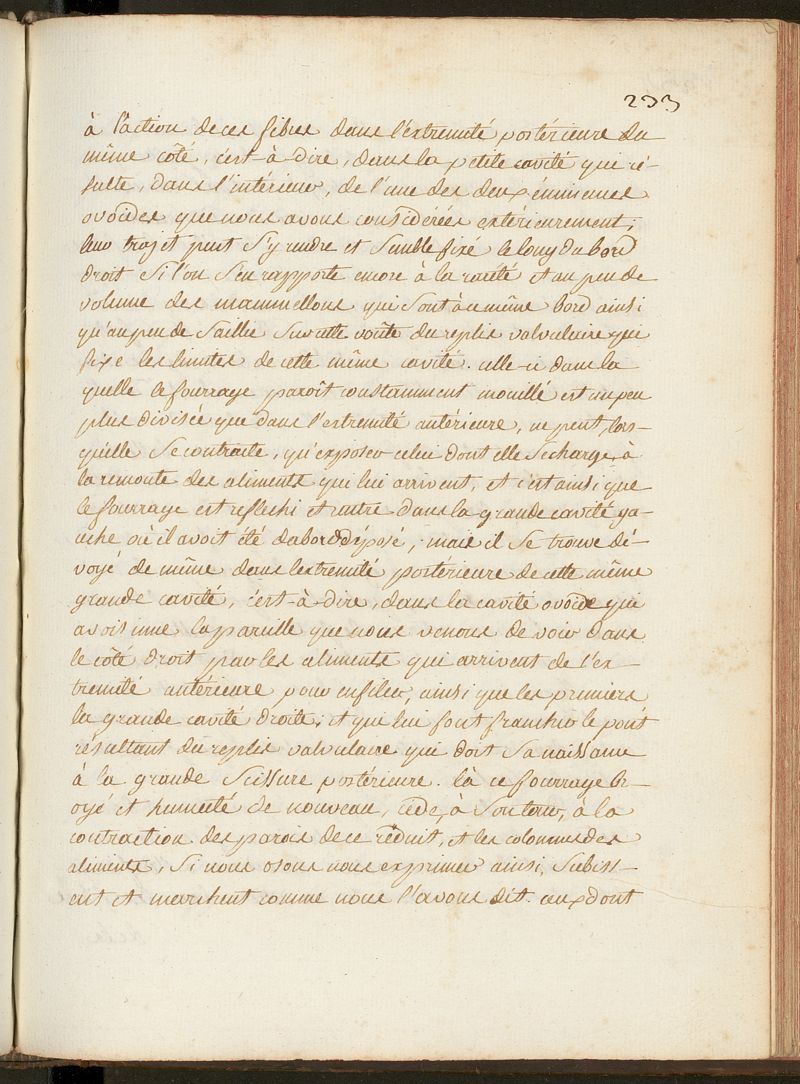 233
à l'action de ces fibres dans l'extremité postérieure du
même côté, c'est-à-dire, dans la petite cavité qui ré-
sulte, dans l'intérieur, de l'une des deux éminences
ovoïdes que nous avons considérées extérieurement;
leur trajet peut s'y rendre et semble fixé le long du bord
droit si l'on s'en rapporte encore à la rareté et au peu de
volume des mammellons qui sont à ce même bord ainsi
qu'au peu de saillie sur cette voûte du replis valvulaire qui
fixe les limites de cette même cavité. celle-ci dans la
quelle le fourrage paroît constamment mouillé est un peu
plus divisée que dans l'extremité antérieure, ne peut, lors-
qu'elle se contracte, qu'exposer celui dont elle se charge, à
la remonte des aliments qui lui arrivent, et c'est ainsi que
le fourrage est reflechi et rentre dans la grande cavité ga-
uche où il avoit été d'abord déposé; mais il se trouve dé-
voyé de même dans l'extremité postérieure de cette même
grande cavité, c'est-à-dire, dans la cavité ovoïde qui
avoisinne la pareille que nous venons de voir dans
le côté droit par les aliments qui arrivent de l'ex-
tremité antérieure pour enfiler, ainsi que les premiers
la grande cavité droite; et qui lui font franchir le pont
résultant du replis valvulaire qui doit sa naissance
à la grande scissure postérieure. là ce fourrage br-
oyé et humecté de nouveau, cède, à son tour, à la
contraction des parois de ce réduit, et les colonnes des
aliments, si nous osons nous exprimer ainsi, subiss-
ent et marchent comme nous l'avons dit. ceux dont